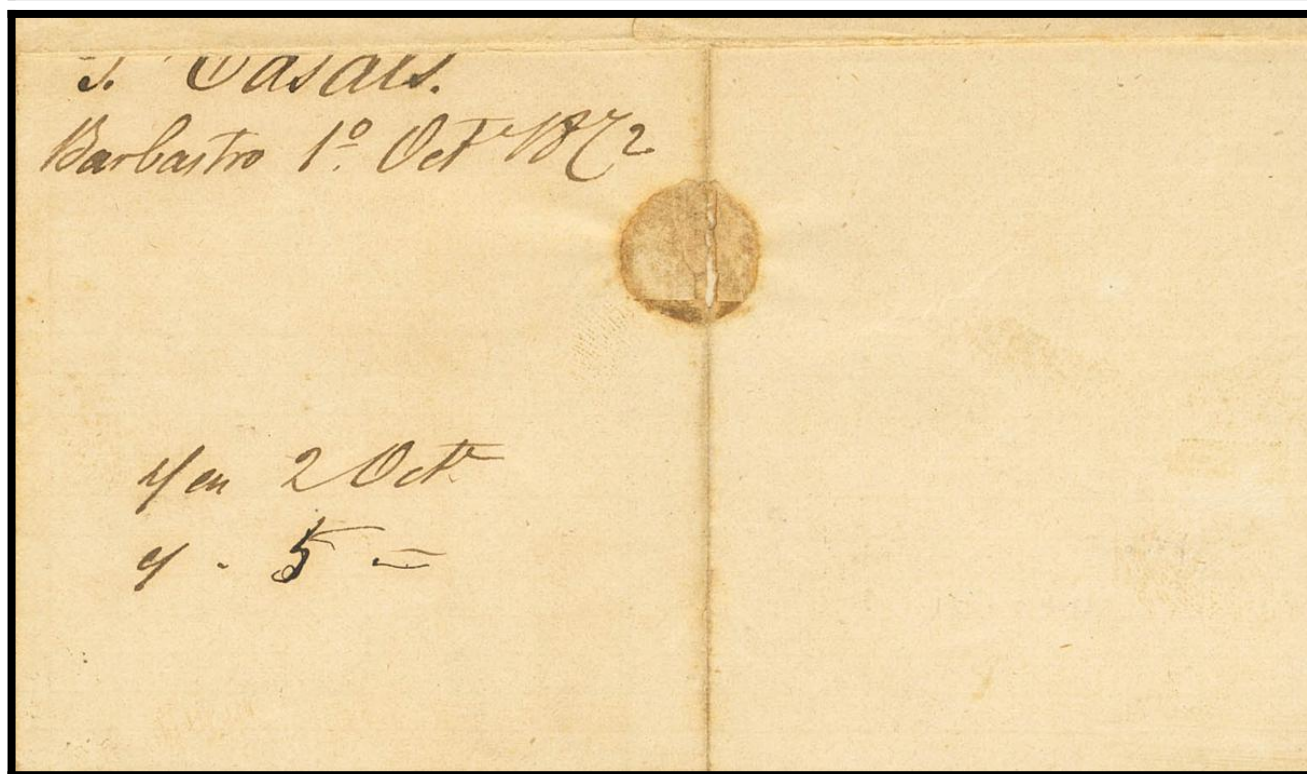 Casals.
Barbastro 1º. Oct^e 1872
en 2 Oct^e
5 =